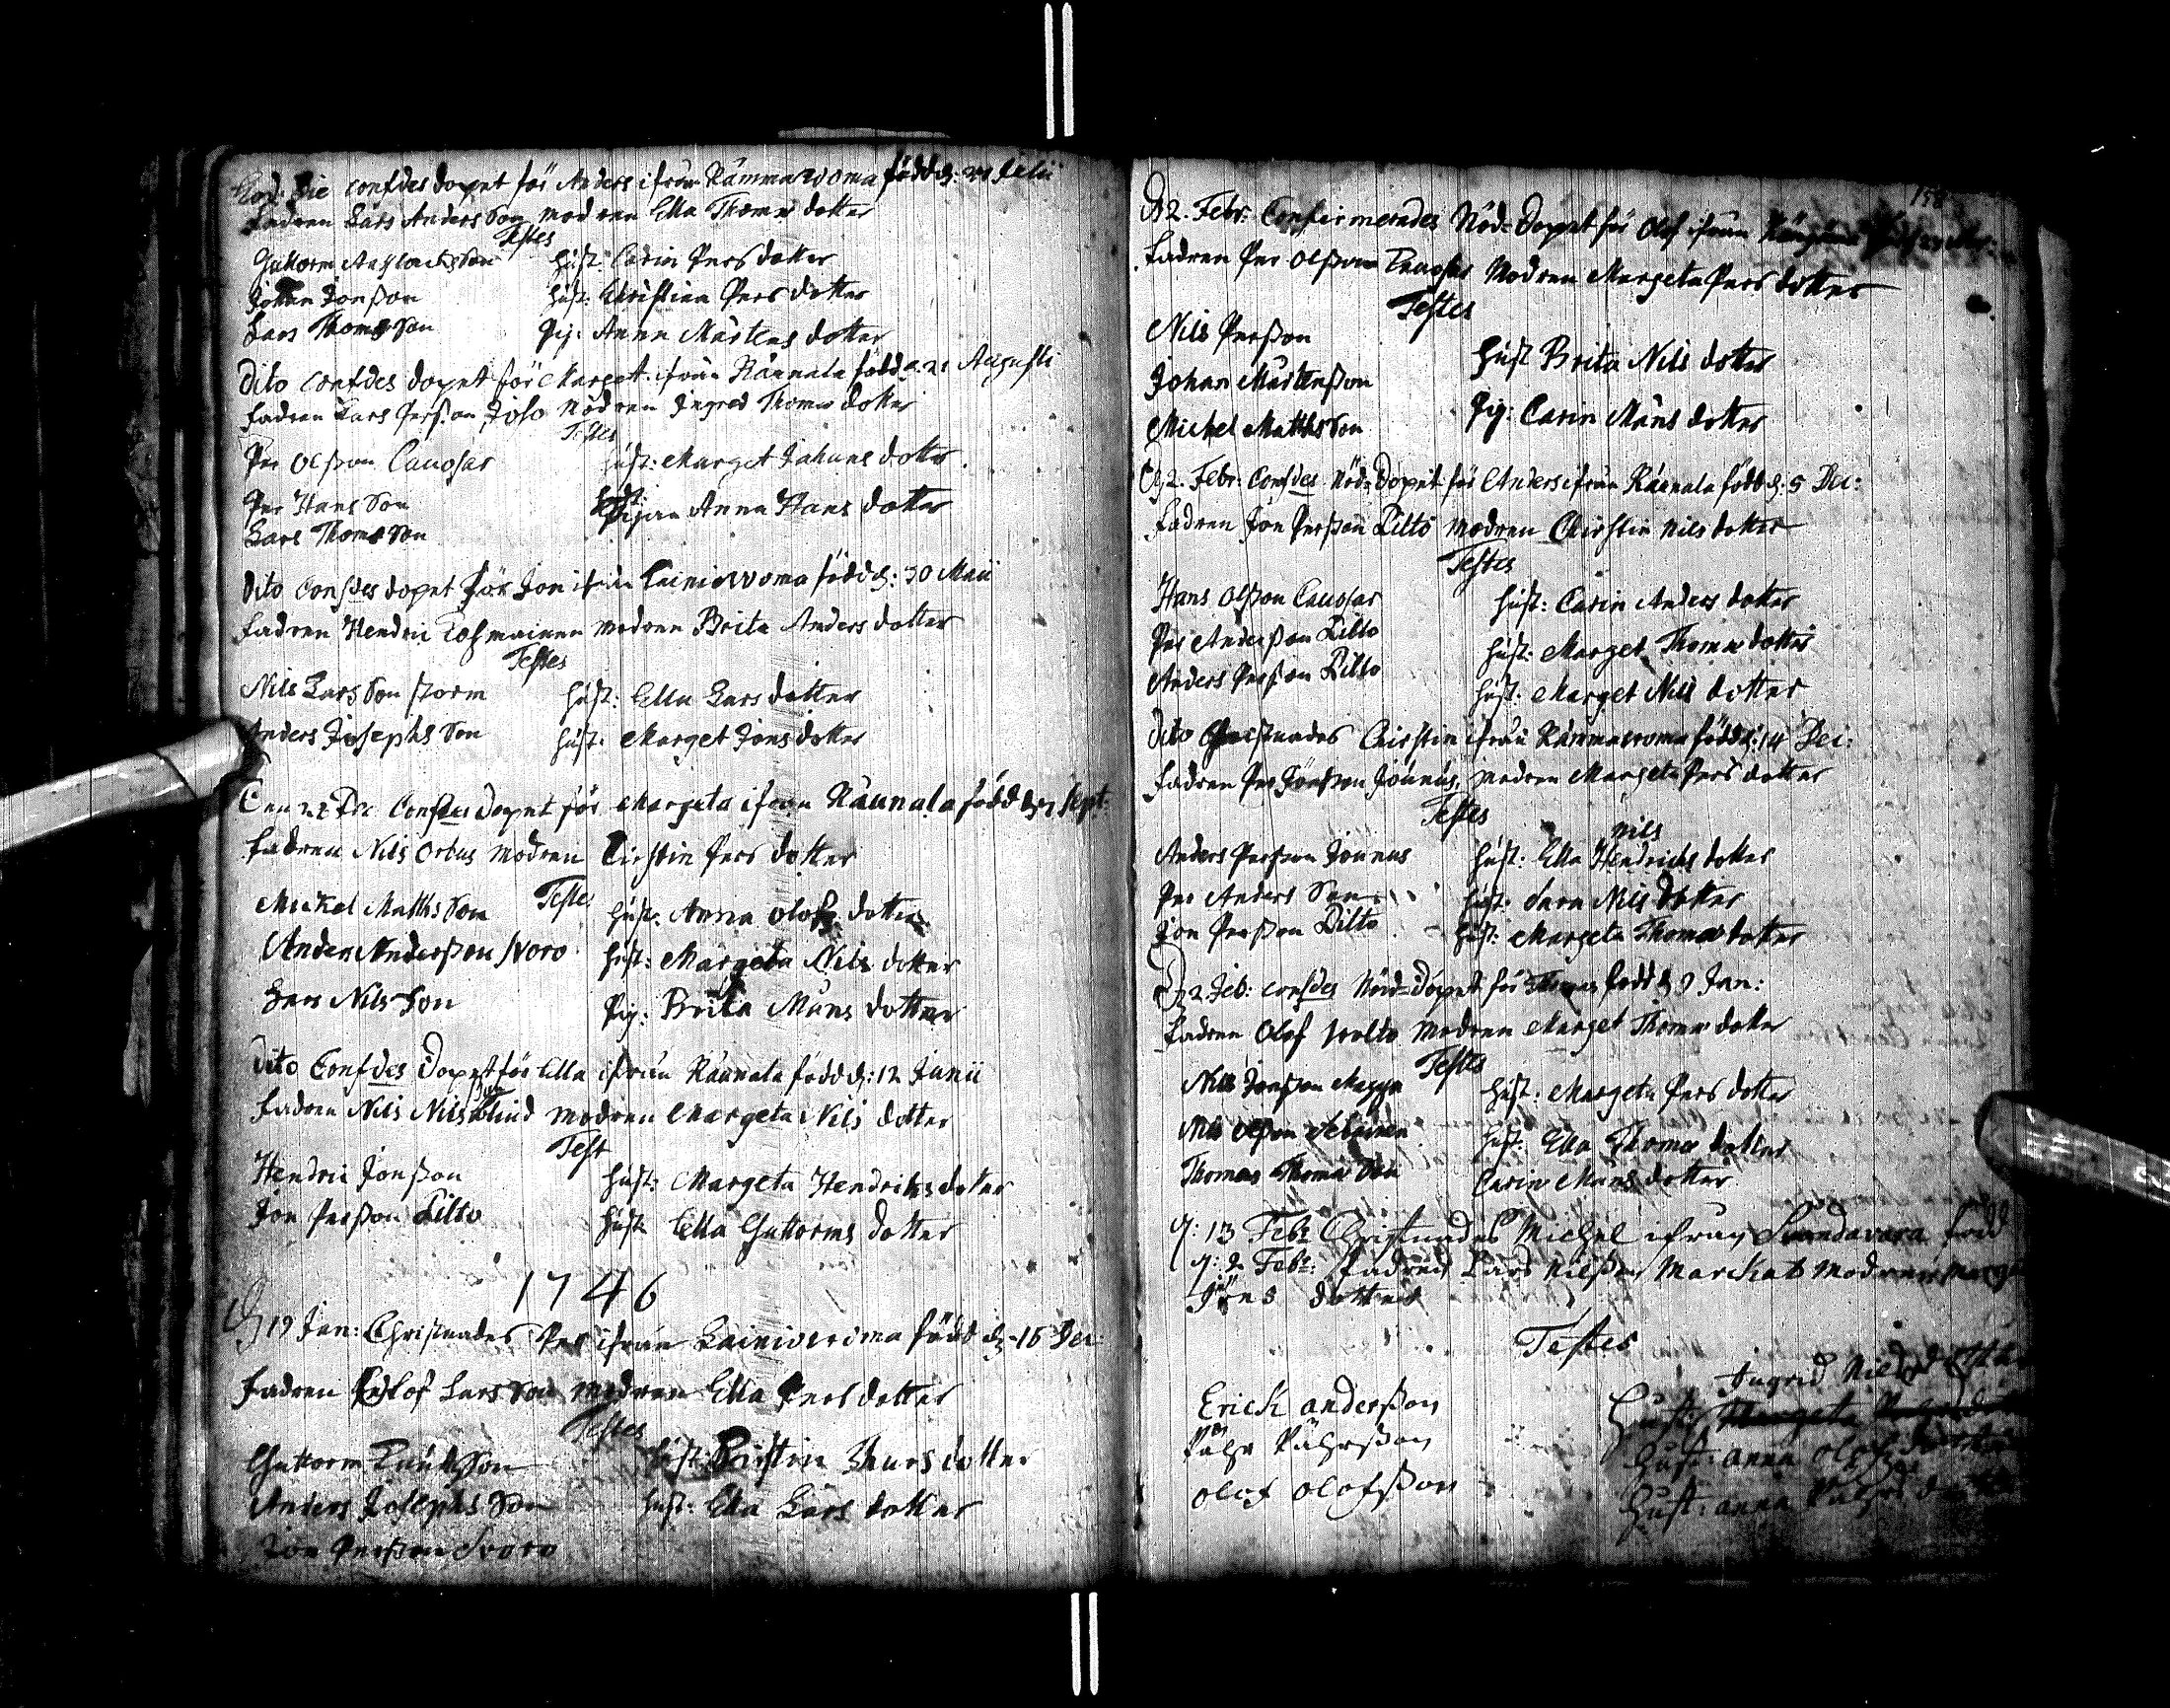 Eod: Die Confdes dopet för Anders ifrån Rämmawoma född d: 21 Julii
Fadren Lars Andersson modren Ella Thomæ dotter
Testes
Guttorm Anflocksson hust: Carin Pers dotter
Johan Jonsson hust: Christina Pers dotter
Lars Thomæ Son Pig: Anna Mårtens dotter
Dito Confdes dopet för Marget ifrån Råunala född d. 21 Augusti
Fadren Lars Persson Modren Ingred Thomæ dotter
Testes
Per Olsson Cauosar hust: Marget Johans dotter
Per Hans Son
Pigan Anna Hans dotter
Lars Thomæ Son
Dito Confdes dopet för Jon ifrån Lainiowoma född d: 30 Maii
Fadren Hendric modren Brita Anders dotter
Testes
Nils Lars Son storm hust: Ella Lars dotter
Anders Josephs Son hust: Marget Jons dotter
Den 22 Dec Confdes dopet för Margeta ifrån Råunala född d: Sept:
Fadren Nils Orbus modren Cirstin Pers dotter
Teste
Mickel Matths Son hust: Anna Olofs dotter
Anders Andersson Svoro hust: Margeta Nils dotter
Lars Nils Son Pig: Brita Måns dotter
Dito Confdes Dopet för Ella ifrån Råunala född d: 12 Junii
Fadren Nils Nils Son blind modren Margeta Nils dotter
Test
Hendric Jonsson hust: Margeta Hendriks dotter
Jon Persson Pilto hust Ella Guttorms dotter
1746
D 19 Jan: Christnades Per ifrån Lainiowoma född d 16 Dec
Fadren Olof Lars Son modren Ella Pers dotter
Testes
Guttorm hust: Cirstin dotter
Anders Josephs Son hust: Ella Lars dotter
Jon Persson Svoro
158
D 2. Febr: Confirmerades Nöd-Dopet för Olof ifrån
Fadren Per Olsson Cauosar Modren Margeta Pers dotter
Testes
Nils Persson
hust Brita Nils dotter
Johan Mårtensson
Pig: Carin Måns dotter
Mickel Matths Son
D 2. Febr: Confdes Nöd-Dopet för Anders ifrån Råunala född d: 5 Dec:
Fadren Jon Persson Pilto modren Christin Nils dotter
Testes
Hans Olsson Cauosar hust: Carin Anders dotter
Per Andersson Pilto hust: Marget Thomæ dotter
Anders Persson Pilto hust: Marget Nils dotter
Dito Christnades Cirstin ifrån Rämmawoma född d: 14 Dec:
Fadren Per Jonsson Jounus, modren Margeta Pers dotter
Testes
Nils
Anders Persson Jounus hust: Ella Hendricks dotter
Per Anders Son hust: Sara Nils dotter
Jon Persson Pilto hust: Margeta Thomæ dotter
D 2 Feb: Confdes Nöd-Dopet för Thomas född d 9 Jan:
Fadren Olof modren Marget Thomæ dotter
Testes
Nils Jonsson Magga hust: Margeta Pers dotter
Nils Olsson hust: Ella Thomæ dotter
Thomas Thomæ Son Carin Måns dotter
d: 13 Febr: Christnades Michel ifrån Sandavara född
d: 2 Febr: Fadren Lars Nilsson Marckat Modren
Jöns dotter
Testes
Ingrid Nils
Erick andersson Hust:
Pähr Pährsson Hust: anna olofs
olof olofsson Hust: anna Pährs